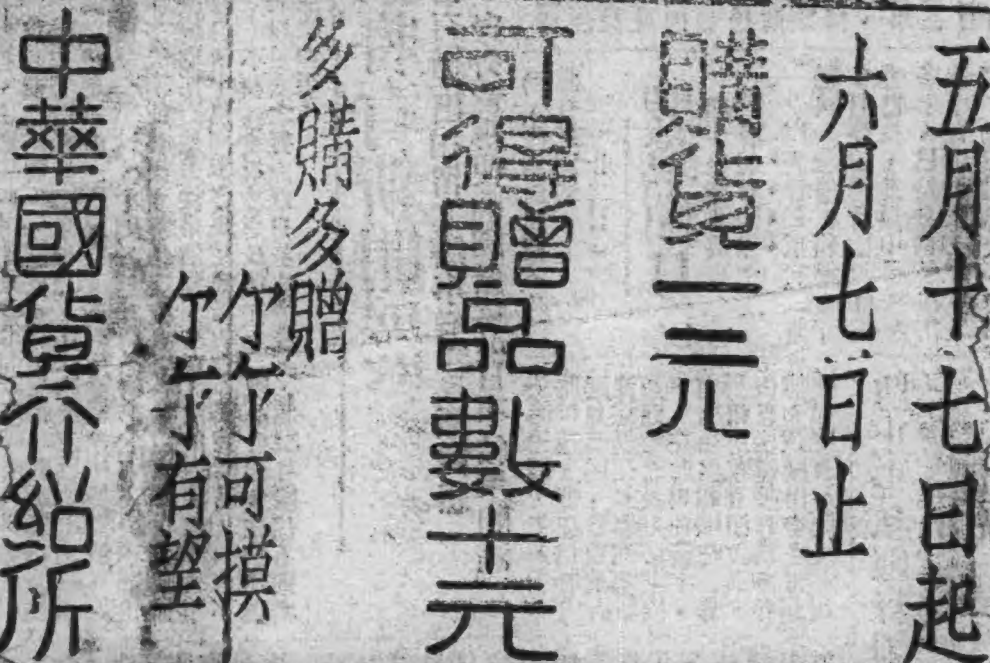 五月十七日起
六月七日止
購貨一元
可得贈品數十元
多購多贈
个个可摸
个个有望
中華國貨介紹所